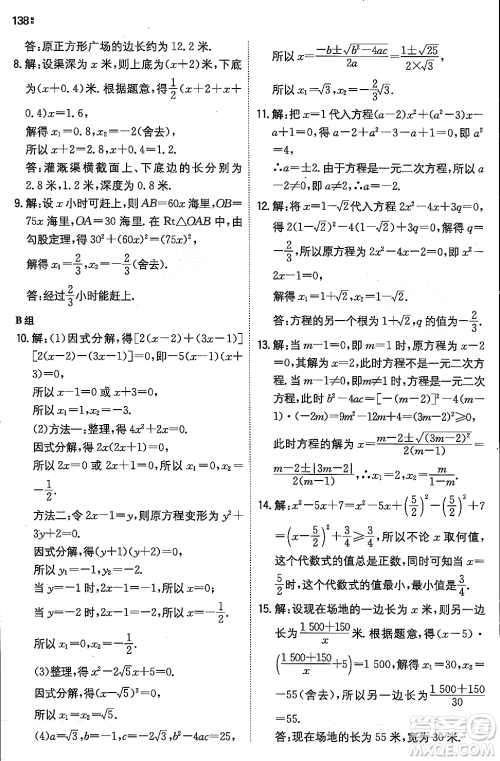 138
答:原正方形广场的边长约为 12.2 米.
8. 解:设渠深为 x 米,则上底为(x+2)米,下底
为(x+0.4)米.根据题意,得1/2(x+2+x+
0.4)x=1.6,
解得 x₁=0.8,x₂=-2(舍去),
所以 x+2=2.8.
答:灌溉渠横截面上、下底边的长分别为
2.8 米,1.2 米,深度为 0.8 米.
9. 解:设 x 小时可赶上,则 AB=60x 海里,OB=
75x 海里,OA=30 海里.在 Rt△OAB 中,由
勾股定理,得 30²+(60x)²=(75x)²,
解得 x₁=2/3,x₂=-2/3(舍去).
答:2/3小时能赶上.
B 组
10. 解:(1)因式分解,得[2(x-2)+(3x-1)]
[2(x-2)-(3x-1)]=0,即-5(x-1)(x+
3)=0,
所以 x-1=0 或 x+3=0,
所以 x₁=1,x₂=-3.
(2)方法一:整理,得 4x²+2x=0.
因式分解,得 2x(2x+1)=0,
所以 x=0 或 2x+1=0,所以 x₁=0,x₂=
-1/2.
方法二:令 2x-1=y,则原方程变形为 y²+
3y+2=0.
因式分解,得(y+1)(y+2)=0,
所以 y₁=-1,y₂=-2.
当 y=-1 时,2x-1=-1,所以 x₁=0;
当 y=-2 时,2x-1=-2,所以 x₂=-1/2.
所以 x₁=0,x₂=-1/2.
(3)整理,得 x²-2√5x+5=0.
因式分解,得(x-√5)²=0,
所以 x₁=x₂=√5.
(4)a=√3,b=-1,c=-√3,
所以 x=(-b±√(b²-4ac))/2a=(1±√13)/2√3

所以 x=(-b±√(b²-4ac))/2a=(1±√25)/2√3
11. 解:把 x=1 代入方程(a-2)x²+(a²-3)x-
a+1=0,得 a-2+a²-3-a+1=0,
a²=4,
∴a=±2.由于方程是一元二次方程,所以
a-2≠0,即 a=-2.
12. 解:将 x=1-√2代入方程 x²-2x+3q=0,得
(1-√2)²-2(1-√2)+3q=0,
解得 q=-1/3,所以原方程变为 x²-
2x-1=0,
解得 x₁=1-√2,x₂=1+√2.
答:方程的另一个根为 1+√2,q 的值为-1/3.
13. 解:当 m-1=0,即 m=1 时,此方程是一元一次
方程,此时方程的解为 x=2;
当 m-1≠0,即 m≠1 时,此方程是一元二次
方程.b²-4ac=[-(m-2)]²-4(m-1)·
(-2m)=(3m-2)²≥0,
此时方程的解为 x=(m-2±√(3m-2)²)/2(m-1)=
(m-2±|3m-2|)/2(m-1),所以 x₁=2,x₂=-m/(m-1).
14. 解:x²-5x+7=x²-5x+(5/2)²-(5/2)²+7
=(x-5/2)²+3/4≥3/4,所以不论 x 取何值,
这个代数式的值总是正数,同时,当 x=
5/2时,这个代数式的值最小,最小值是3/4.
15. 解:设现在场地的一边长为 x 米,则另一边长
为(1 500+150)/x米.根据题意,得(x-5)·
((1 500+150)/x-5)=1 500,解得 x₁=30,x₂=
-55(舍去),所以另一边长为(1 500+150)/30
=55.
答:现在场地的长为 55 米,宽为 30 米.